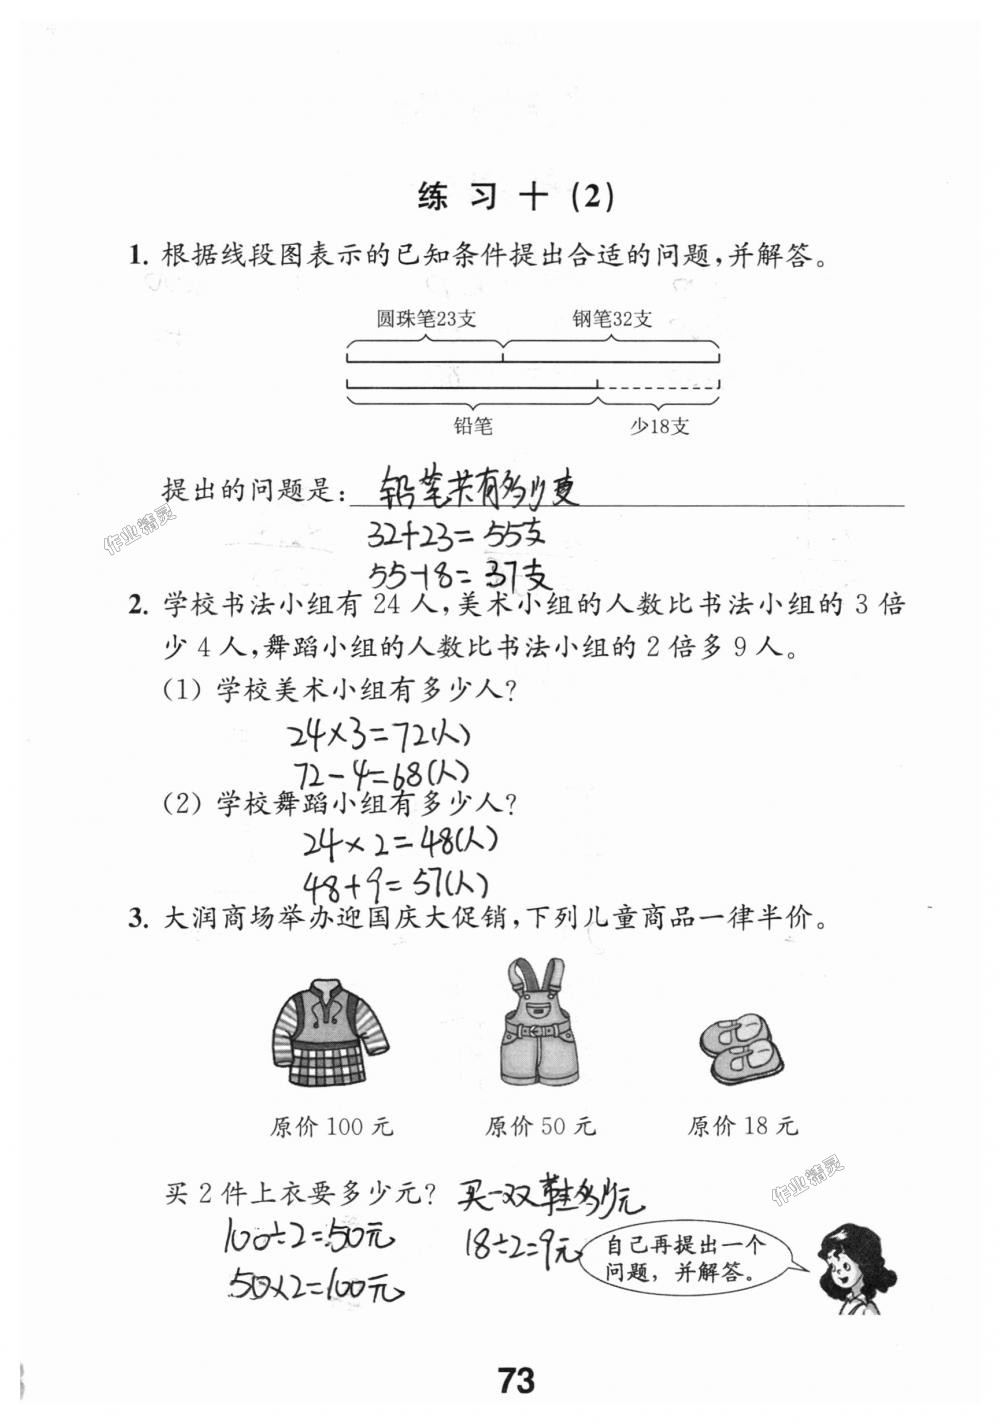 练 习 十 (2)
1. 根据线段图表示的已知条件提出合适的问题,并解答。
圆珠笔23支 钢笔32支
铅笔 少18支
提出的问题是: 铅笔共有多少支
32+23=55支
55-18=37支
2. 学校书法小组有 24 人,美术小组的人数比书法小组的 3 倍
少 4 人,舞蹈小组的人数比书法小组的 2 倍多 9 人。
(1) 学校美术小组有多少人?
24×3=72(人)
72-4=68(人)
(2) 学校舞蹈小组有多少人?
24×2=48(人)
48+9=57(人)
3. 大润商场举办迎国庆大促销,下列儿童商品一律半价。
原价 100 元 原价 50 元 原价 18 元
买 2 件上衣要多少元? 买一双鞋多少元
100÷2=50元 18÷2=9元
50×2=100元
自己再提出一个
问题,并解答。
73
作业精灵
作业精灵